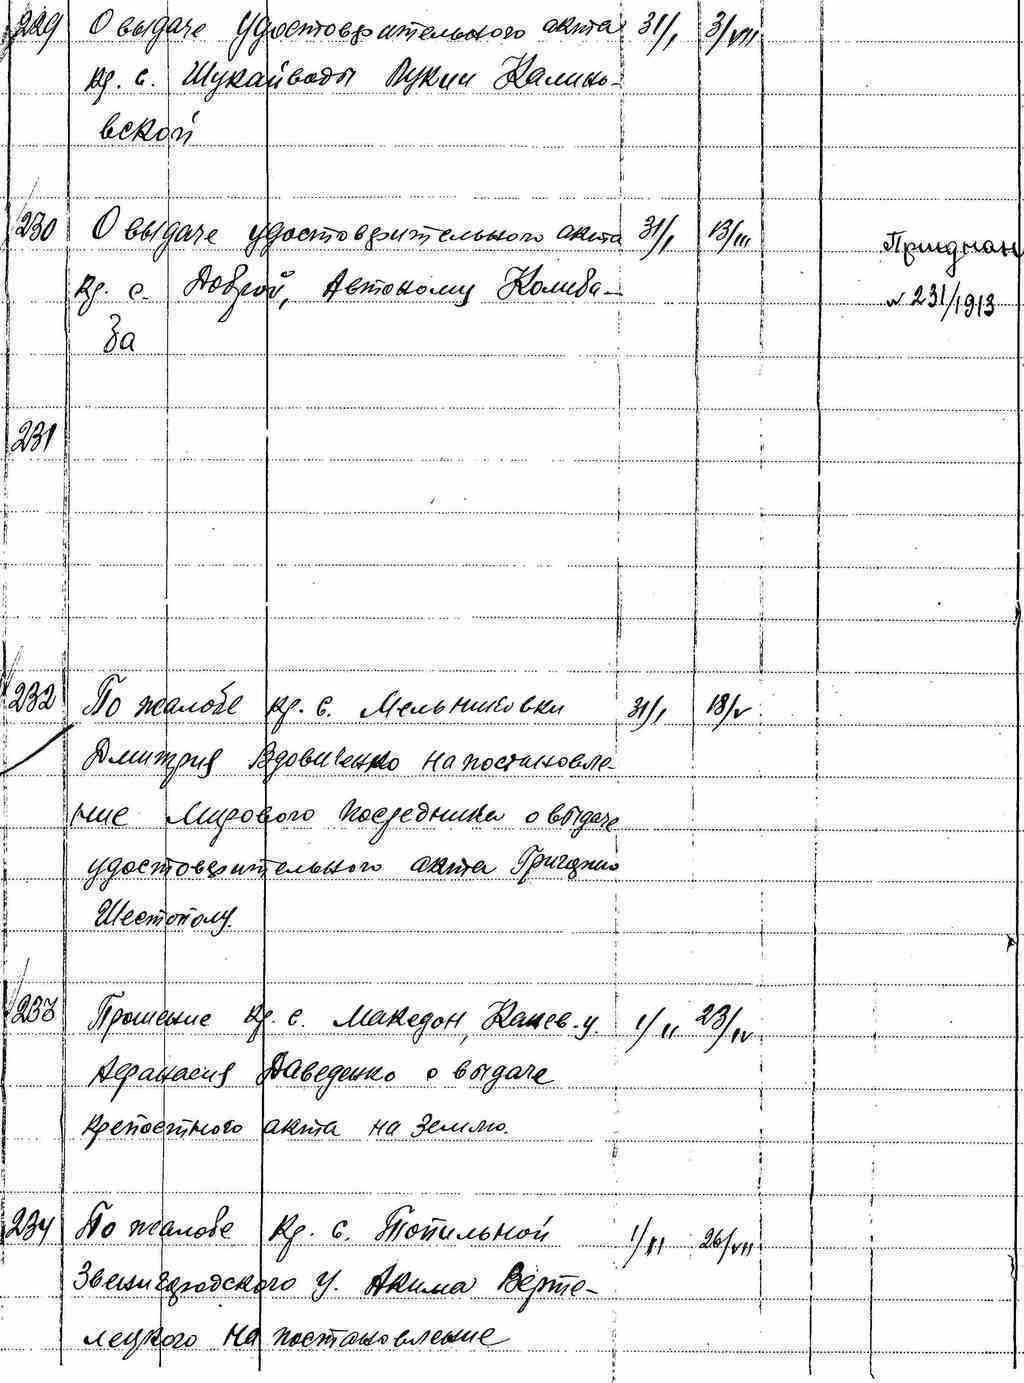 229 О выдаче удостоверительного акта 31/I 3/VII
кр. с. Шукайводы Лукии Калино-
вской
230 О выдаче удостоверительного акта 31/I 13/III
кр. с. Доброй, Автоному Колиба-
ба
№ 231/1913
231
232 По жалобе кр. с. Мельниковки 31/I 18/V
Дмитрия Вдовиченко на постановле-
ние Мирового Посредника о выдаче
удостоверительного акта Григорию
Шестополу.
233 Прошение кр. с. Македон, Канев. у. 1/II 23/IV
Афанасия Даведенко о выдаче
крепостного акта на землю.
234 По жалобе кр. с. Топильной 1/II 26/VII
Звенигородского у. Акима Верте-
лецкого на постановление